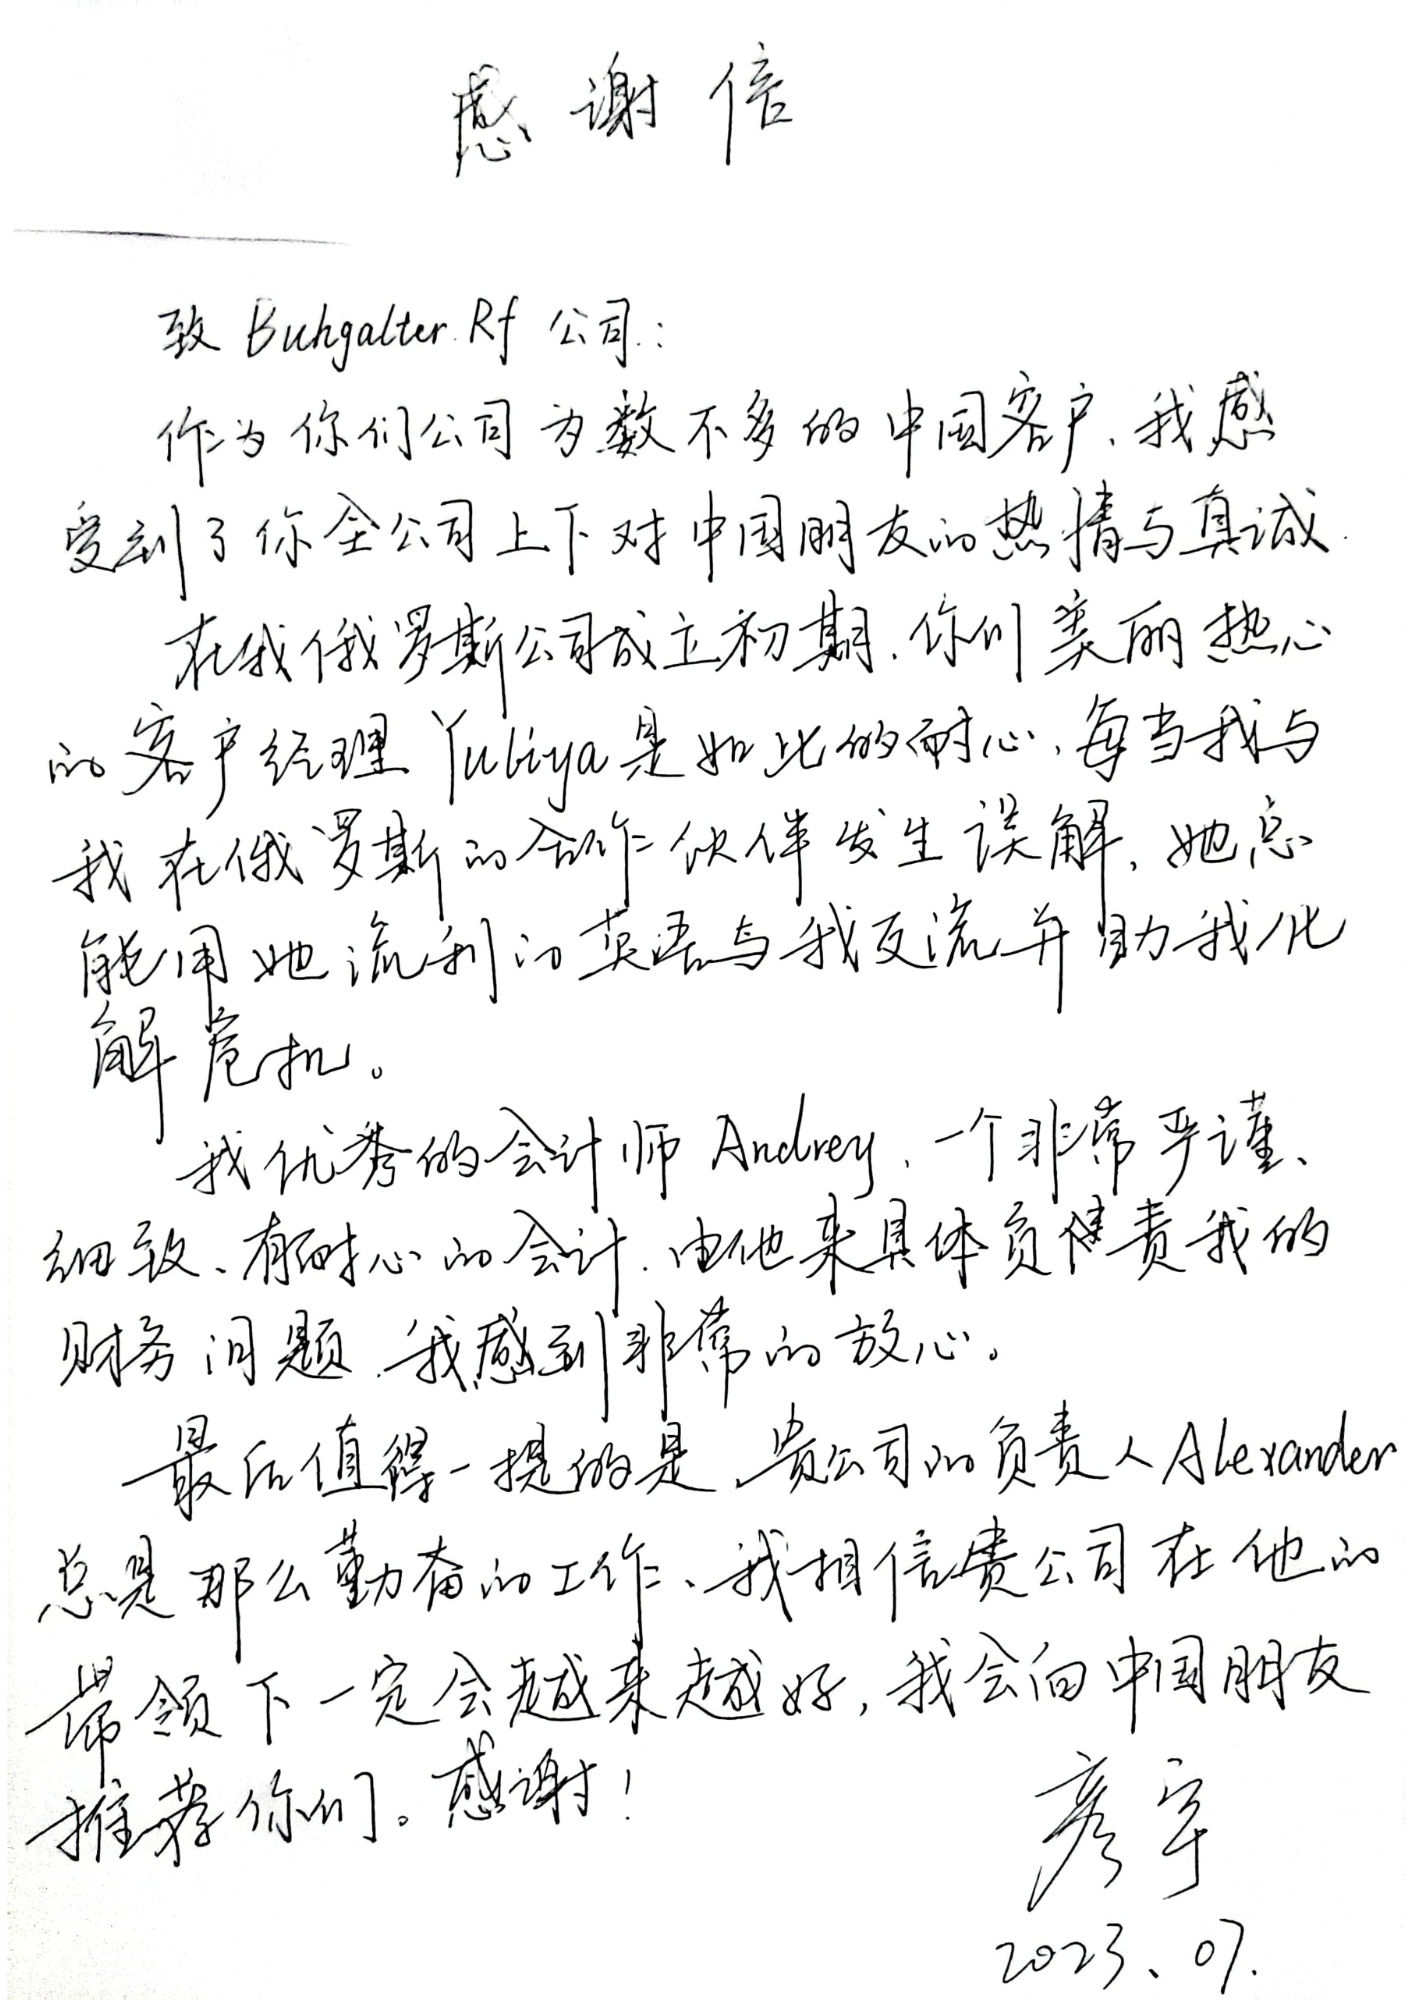 感谢信
致 Buhgalter.Rf 公司:
作为你们公司为数不多的中国客户、我感
受到了你全公司上下对中国朋友的热情与真诚.
在我俄罗斯公司成立初期、你们美丽热心
的客户经理 Yuliya是如此的耐心、每当我与
我在俄罗斯的合作伙伴发生误解、她总
能用她流利的英语与我交流并助我化
解危机。
我优秀的会计师 Andrey、一个非常严谨、
细致、有耐心的会计.由他来具体负责我的
财务问题.我感到非常的放心。
最后值得一提的是、贵公司的负责人Alexander
总是那么勤奋的工作、我相信贵公司在他的
带领下一定会越来越好,我会向中国朋友
推荐你们。感谢!
彦宇
2023、07.